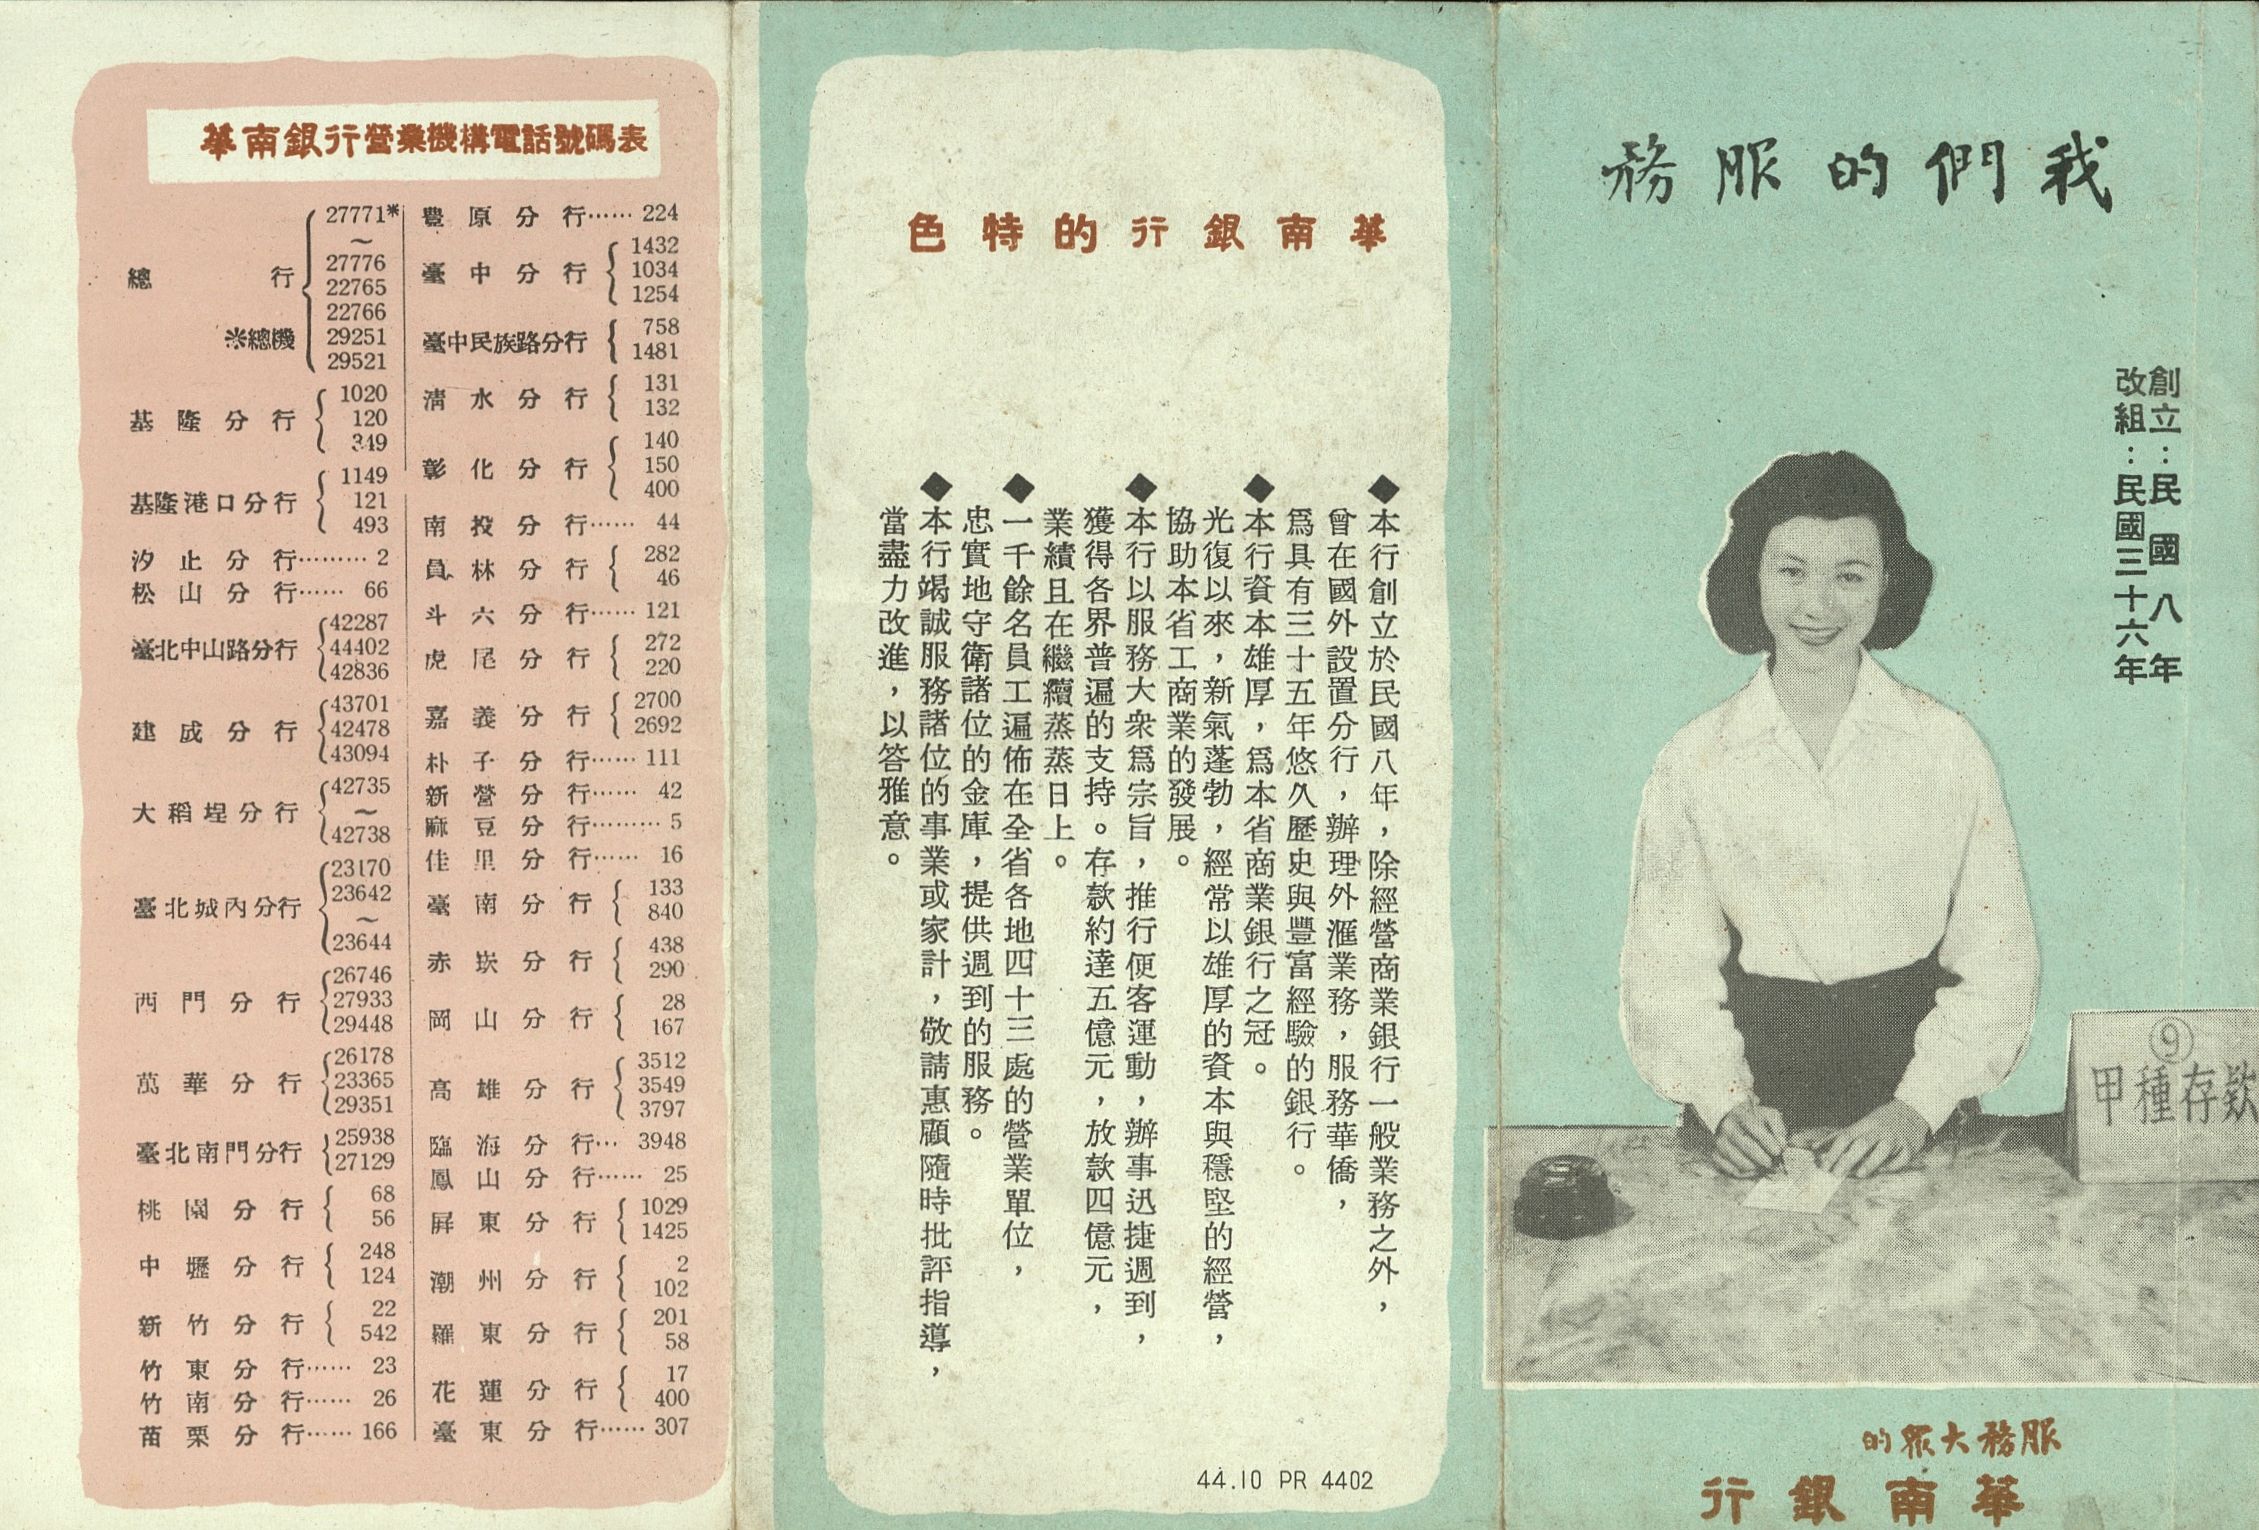 我們的服務
創立：民國八年
改組：民國三十六年
⑨
甲種存欵
服務大衆的
華南銀行
華南銀行的特色
◆本行創立於民國八年，除經營商業銀行一般業務之外，
曾在國外設置分行，辦理外滙業務，服務華僑，
爲具有三十五年悠久歷史與豐富經驗的銀行。
◆本行資本雄厚，爲本省商業銀行之冠。
光復以來，新氣蓬勃，經常以雄厚的資本與穩堅的經營，
協助本省工商業的發展。
◆本行以服務大衆爲宗旨，推行便客運動，辦事迅捷週到，
獲得各界普遍的支持。存款約達五億元，放款四億元，
業績且在繼續蒸蒸日上。
◆一千餘名員工遍佈在全省各地四十三處的營業單位，
忠實地守衛諸位的金庫，提供週到的服務。
◆本行竭誠服務諸位的事業或家計，敬請惠顧隨時批評指導，
當盡力改進，以答雅意。
44.10 PR 4402
華南銀行營業機構電話號碼表
總行 27771*
～
27776
22765
22766
※總機 29251
29521
基隆分行 1020
120
349
基隆港口分行 1149
121
493
汐止分行……… 2
松山分行…… 66
臺北中山路分行 42287
44402
42836
建成分行 43701
42478
43094
大稻埕分行 42735
～
42738
臺北城內分行 23170
23642
～
23644
西門分行 26746
27933
29448
萬華分行 26178
23365
29351
臺北南門分行 25938
27129
桃園分行 68
56
中壢分行 248
124
新竹分行 22
542
竹東分行…… 23
竹南分行…… 26
苗栗分行…… 166
豐原分行…… 224
臺中分行 1432
1034
1254
臺中民族路分行 758
1481
清水分行 131
132
彰化分行 140
150
400
南投分行…… 44
員林分行 282
46
斗六分行…… 121
虎尾分行 272
220
嘉義分行 2700
2692
朴子分行…… 111
新營分行…… 42
麻豆分行……… 5
佳里分行…… 16
臺南分行 133
840
赤崁分行 438
290
岡山分行 28
167
高雄分行 3512
3549
3797
臨海分行… 3948
鳳山分行…… 25
屏東分行 1029
1425
潮州分行 2
102
羅東分行 201
58
花蓮分行 17
400
臺東分行…… 307